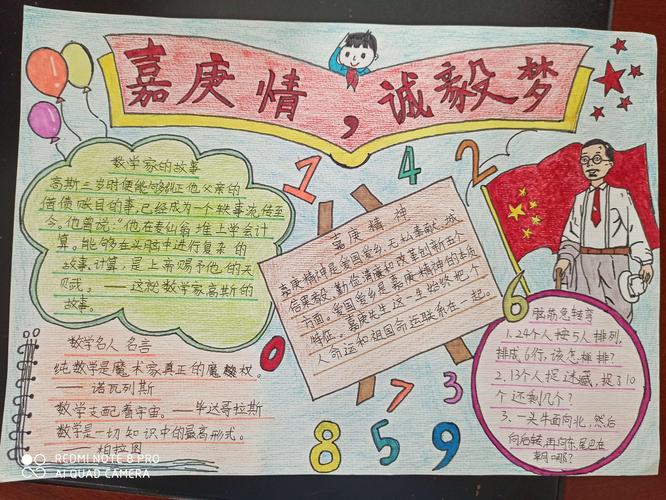 嘉庚情，诚毅梦
数学家的故事
高斯三岁时便能够纠正他父亲的
借债账目的事,已经成为一个轶事流传至
今。他曾说:“他在麦仙翁堆上学会计
算。能够在头脑中进行复杂的
计算，是上帝赐予他的天
——这就数学家高斯的
故事。
数学名人名言
纯数学是魔术家真正的魔权。
——诺瓦列斯
数学支配着宇宙。——毕达哥拉斯
数学是一切知识中的最高形式。
柏拉图
嘉庚精神
嘉庚精神是爱国爱乡、无私奉献、诚
信果毅、勤俭清廉和改革创新五个
方面。爱国爱乡是嘉庚精神的本质
特征。嘉庚先生这一生始终把个
人命运和祖国命运联系在一起。
脑筋急转弯
1.24个人按5人排列,
排成6行,该怎样排?
2.13个人捉迷藏,捉了10
个还剩几个?
3.一头牛面向北,然后
向后转,再向东,尾巴在
朝哪?
1
4
2
6
0
7
3
8
5
9
REDMI NOTE 8 PRO
AI QUAD CAMERA